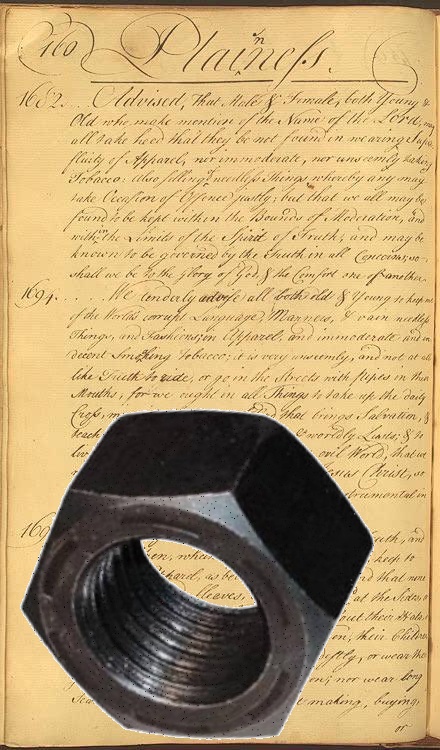 160 Plainness.
1682. . . Advised, that Male & Female, both Young &
Old who make mention of the Name of the Lord, may
all take heed that they be not found in wearing Supr
fluity of Apparel, nor immoderate, nor unseemly taking
Tobacco: Also selling needless Things whereby any may
take Occasion of Offence justly; but that we all may be
found to be kept within the Bounds of Moderation, and
within the Limits of the Spirit of Truth; and may be
known to be governed by the Truth in all Concerns, so
shall we be to the Glory of God, & the Comfort one of another.
1694. . . . . We tenderly advise all both old & Young to keep
of the World's corrupt Language, Manners, & vain needless
Things, and Fashions, in Apparel; and immoderate and in
decent Smoking Tobacco; it is very unseemly, and not at all
like Truth to ride, or go in the Streets with pipes in their
Mouths, for we ought in all Things to take up the daily
Cross, that brings Salvation, &
teach worldly Lusts; & to
evil World, that
Jesus Christ, so
Instrumental in
169
keep to
when
as be that none
leaves, at the Sides,
out their
their Children
or wear the
nor wear long
making, buying,
or